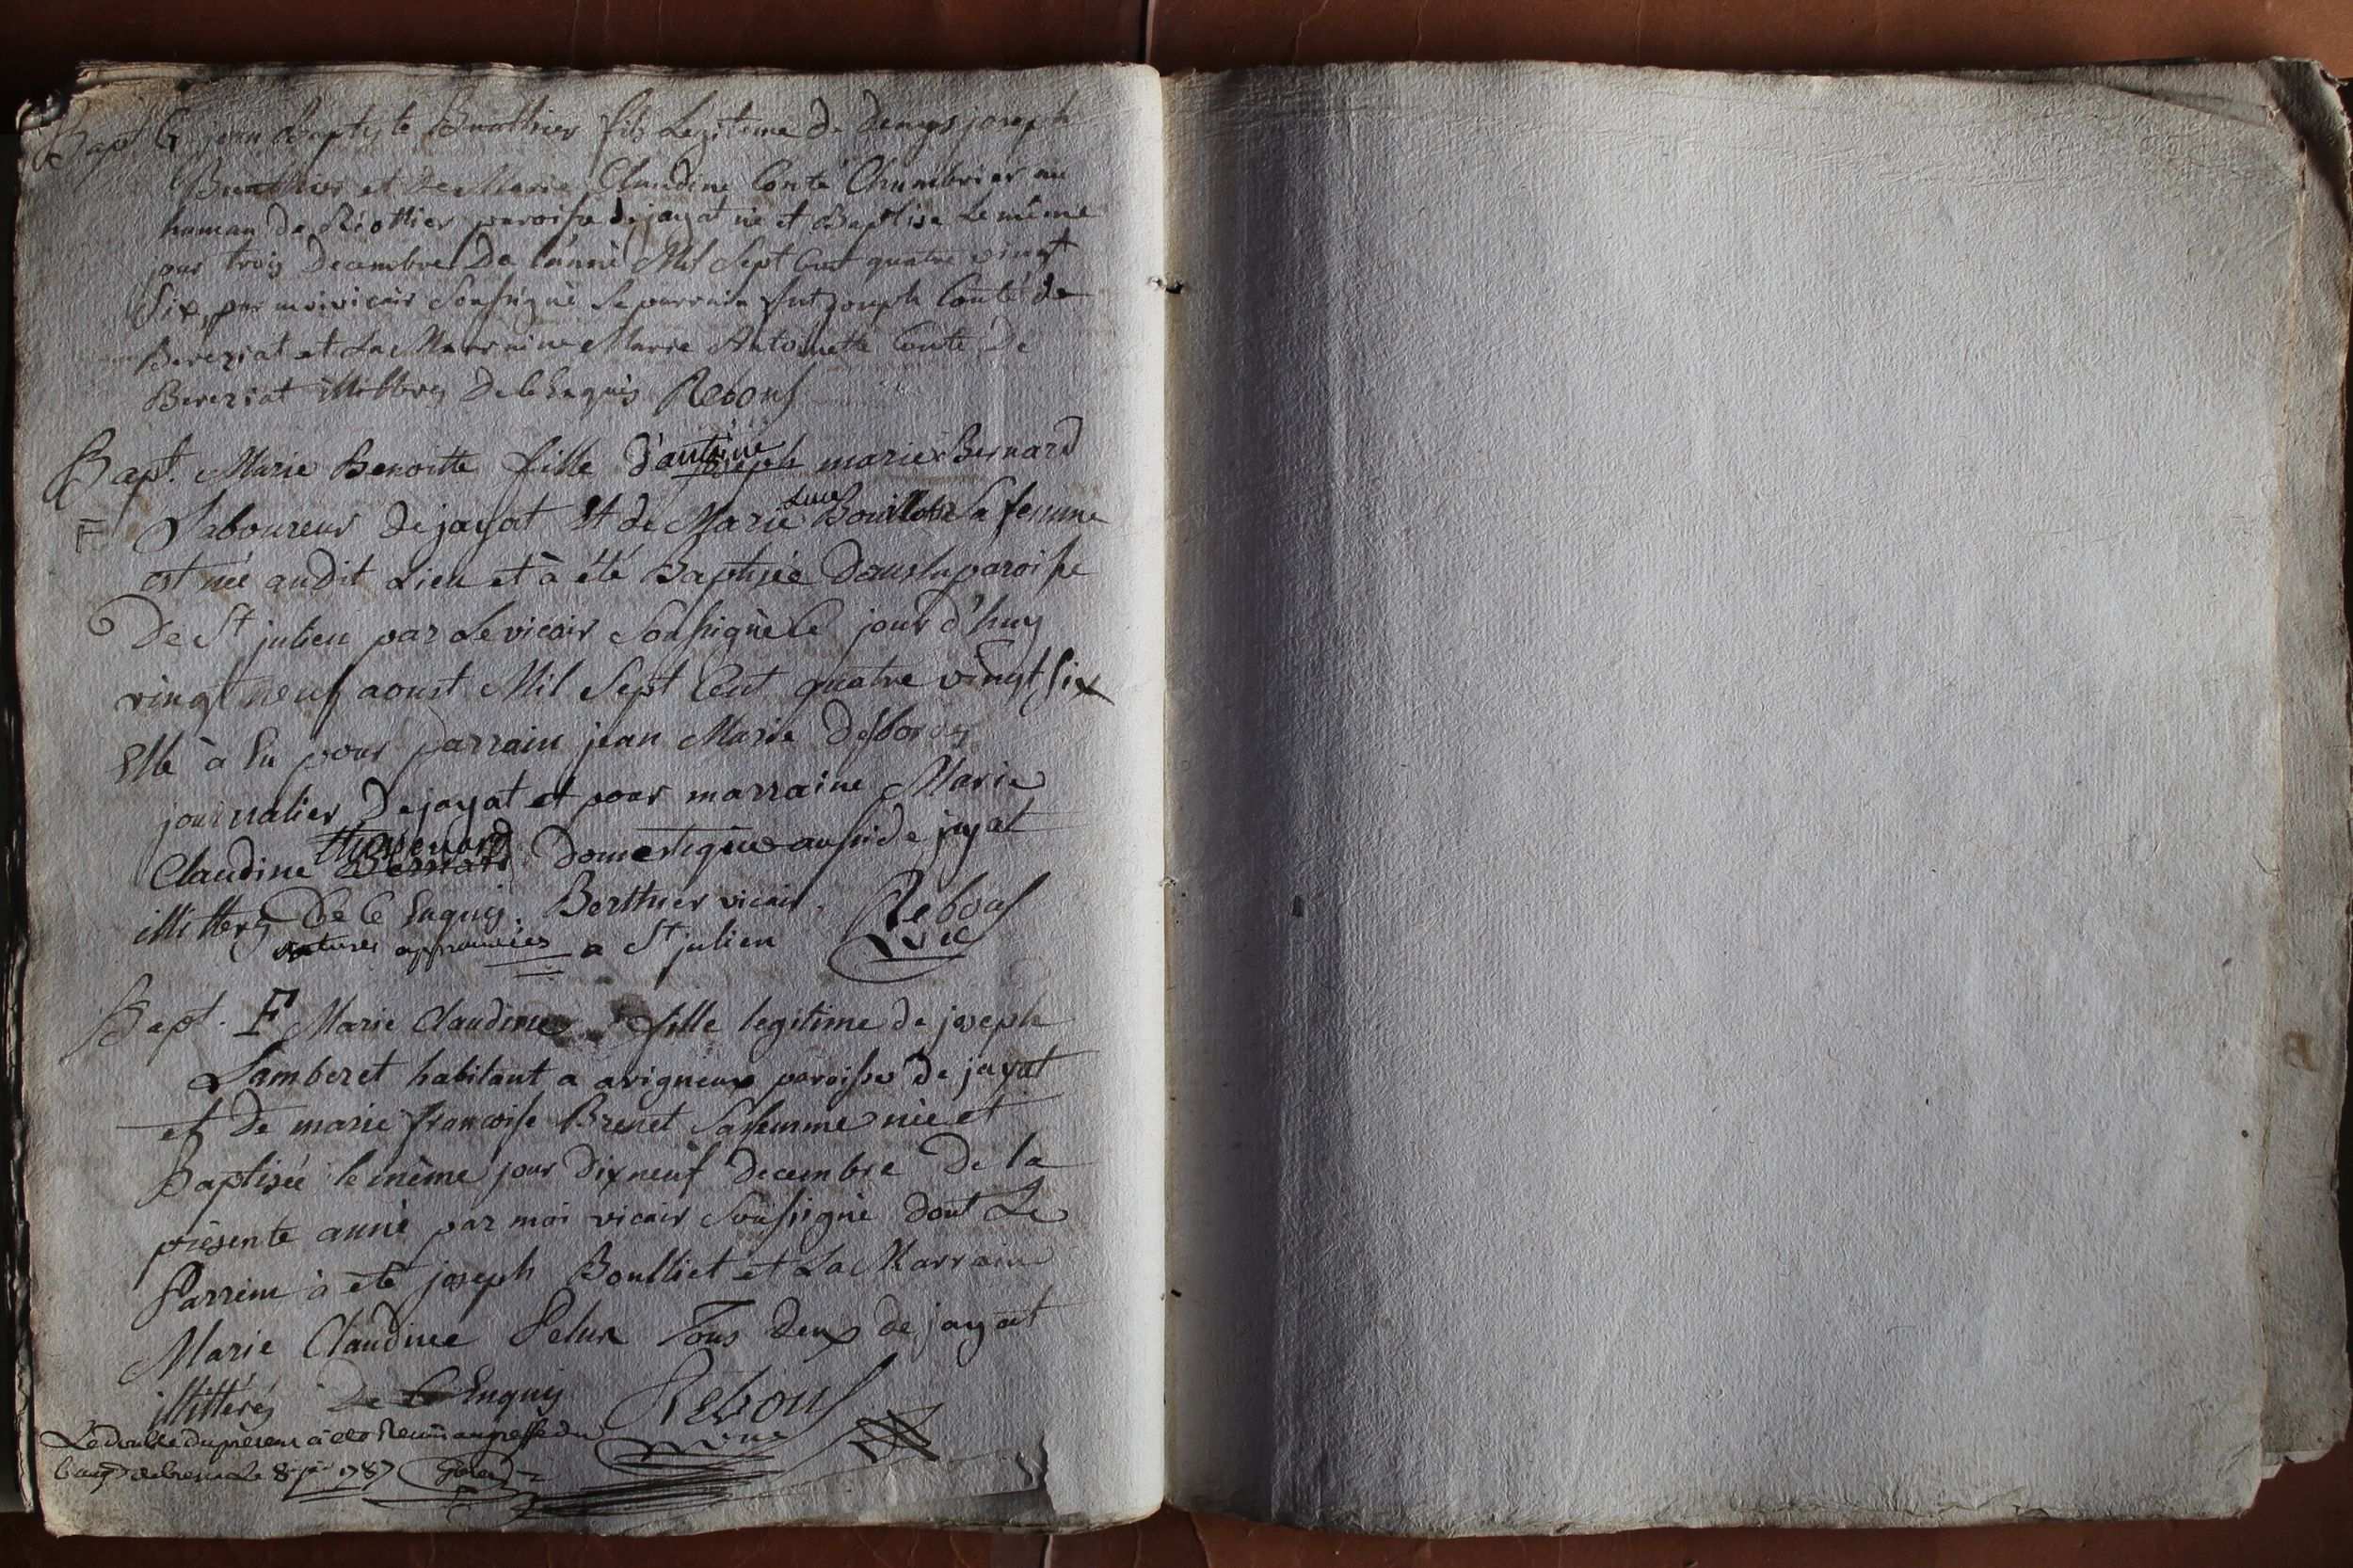 Bapt G jean Baptiste Buathier fils Legitime de denys joseph
Buathier et de Marie Claudine Conté Chambrier au
hameau de Riottier paroisse de jayat né et Baptisé le même
jour trois Decembre De l'année Mil Sept Cent quatre vingt
Six, par moi vicair Soussigné Le parrain fut joseph Conté de
Bereziat et La Marraine Marie Antoinette Conté De
Bereziat illittrés De Ce Enquis Rebouf
Bapt. Marie Benoitte fille d'antoine joseph marie Bernard
F Laboureur de jayat Et de Marie Luce Bouillot Sa femme
est née audit Lieu et à été Baptisée dans la paroisse
De St julien par Le vicair Soussigné le jour d'huy
vingt neuf aoust Mil Sept Cent quatre vingt Six
Elle à Eu pour parrain jean Marie desbordes
journalier De jayat et pour marraine Marie
Claudine Thevenard Bernard Domestique aussi de jayat
illittérés De Ce Enquis. Berthier vicair. Rebouf
ratures approuvées a St julien Vic
Bapt. F Marie Claudine fille legitime de joseph
Lamberet habitant a avigneux paroisse De jayat
et De marie francoise Brenet Sa femme née et
Baptisée le même jour Dix neuf decembre De la
présente année par moi vicair Soussigné dont Le
Parrein à été joseph Boulliet et La Marrain
Marie Claudine Pelux Tous deux de jayat
illittérés De Ce Enquis Rebouf
Le double du présent à été Remis au greffe du vic
Baage de bresse Le 8 jer 1787